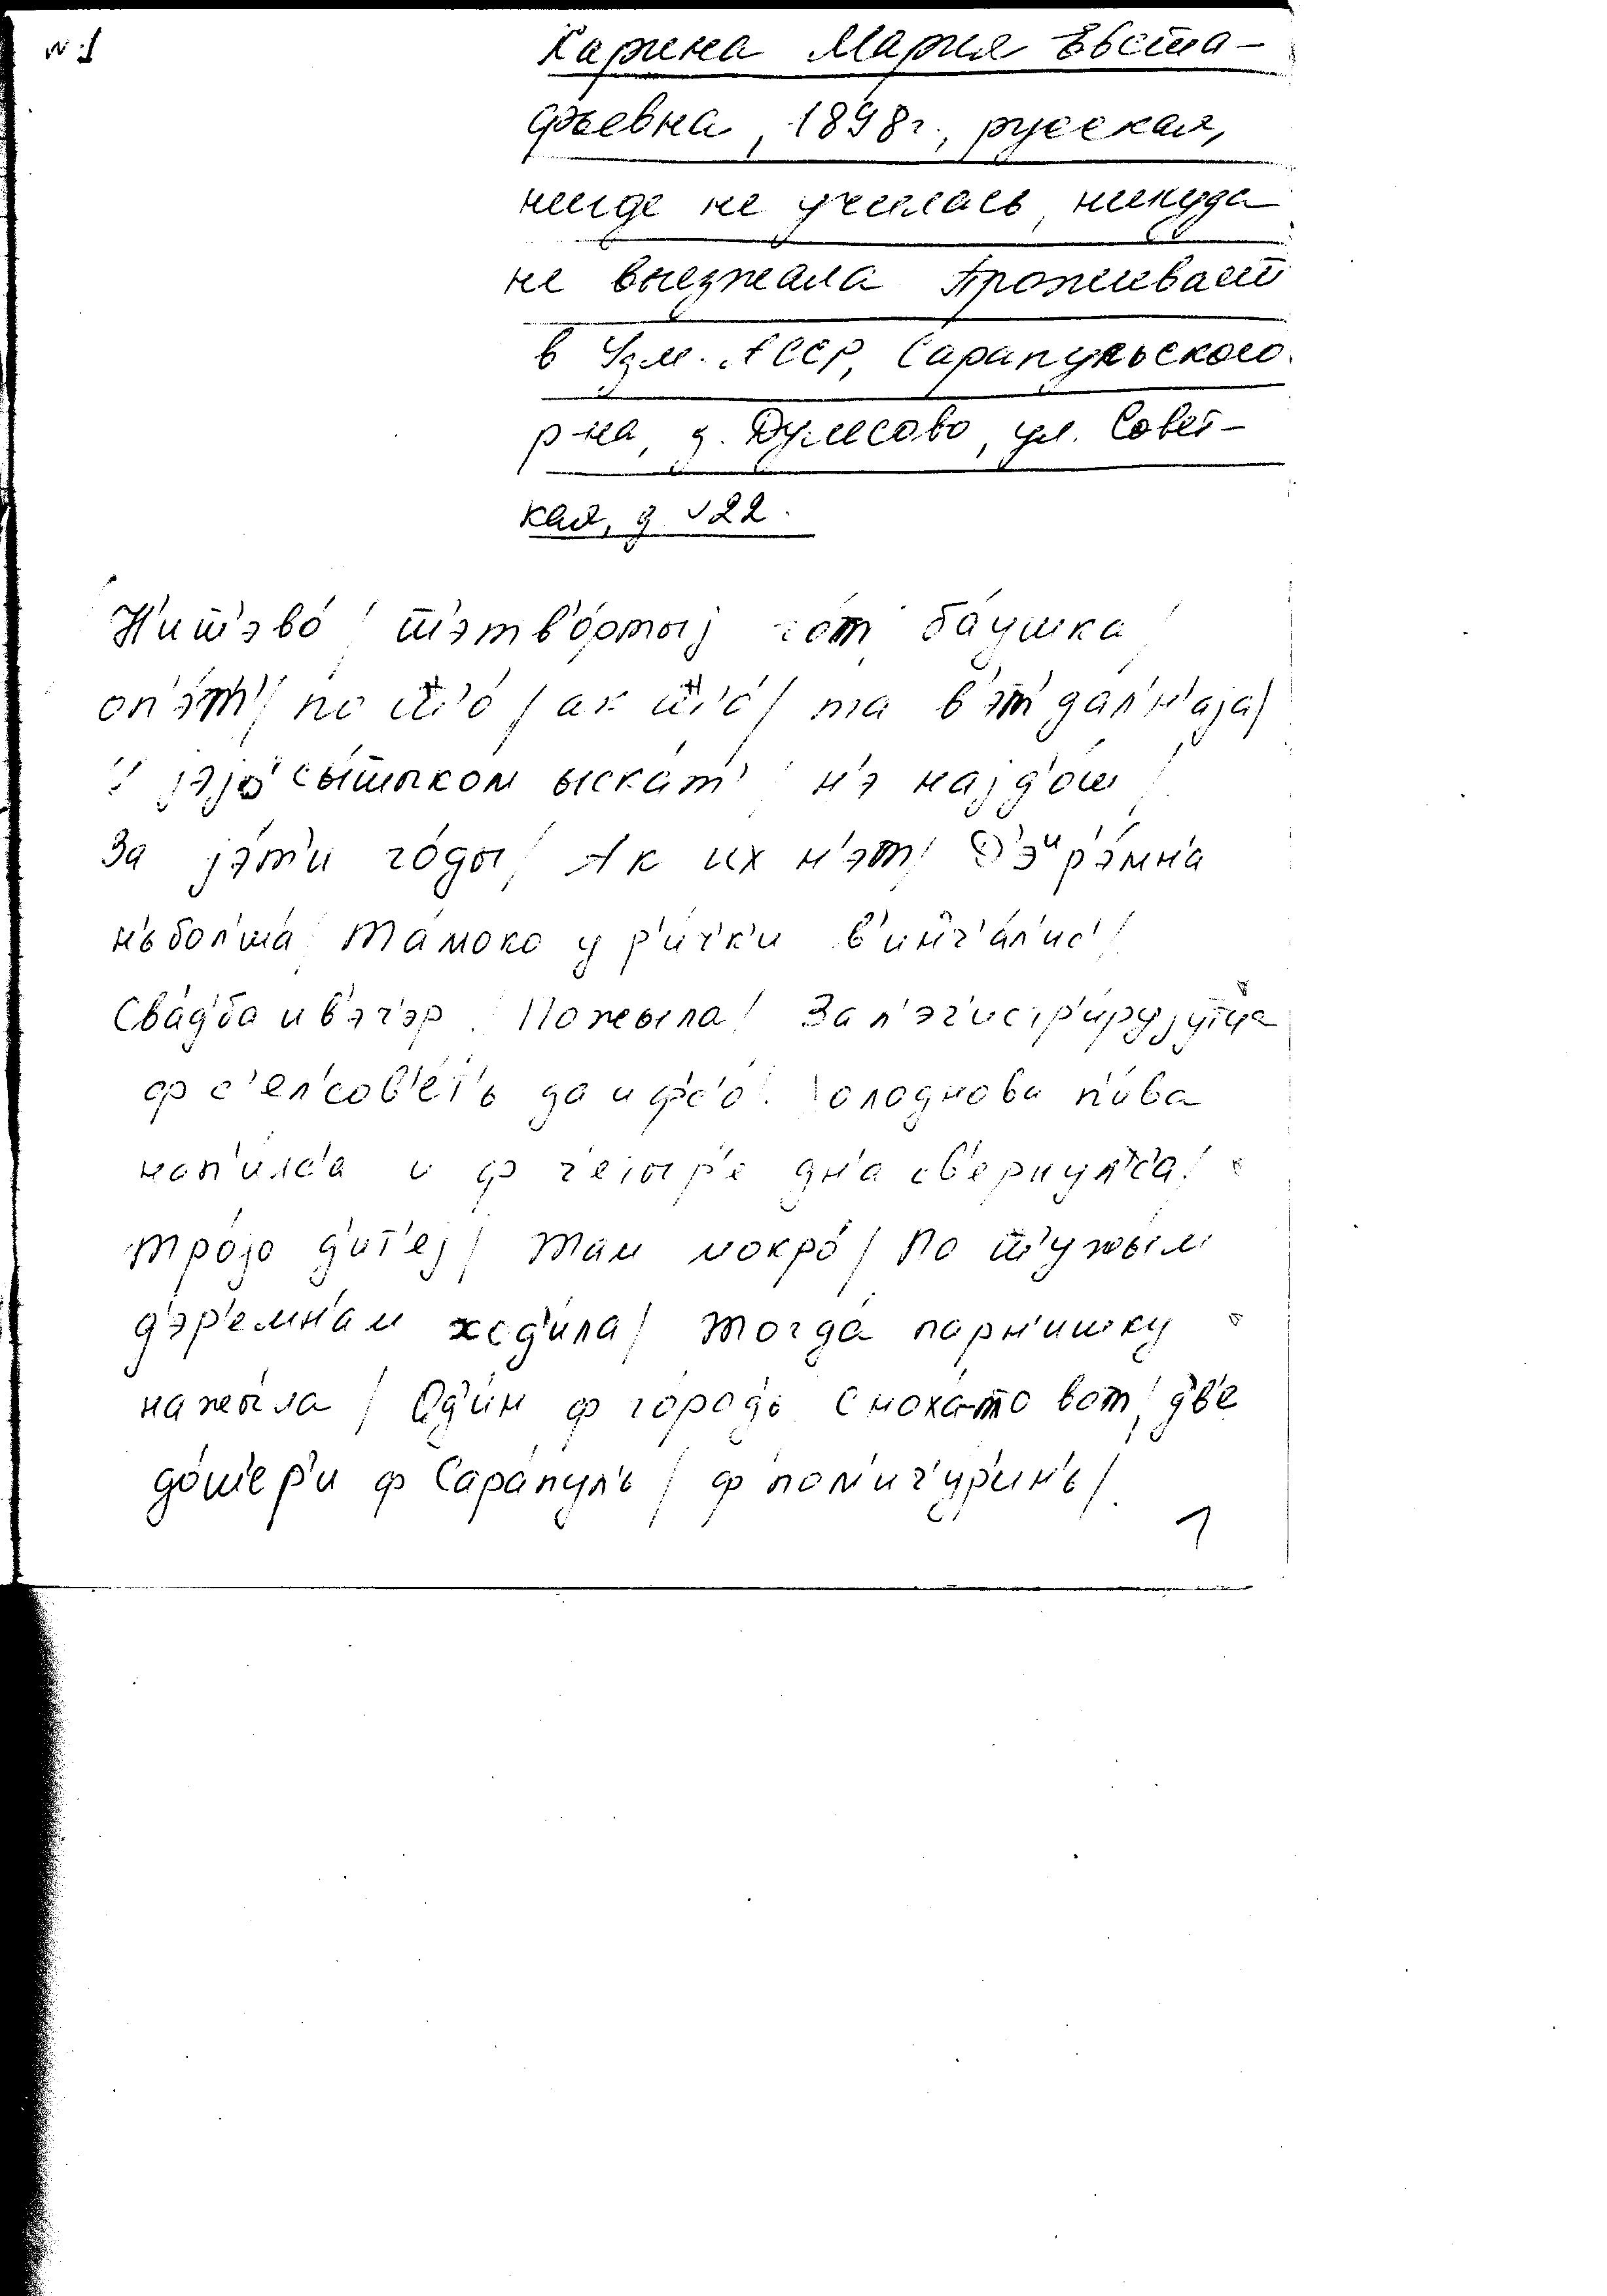 №1
Карина Мария Евста-
фьевна, 1898г., русская,
нигде не училась, никуда
не выезжала Проживает
в Удм. АССР, Сарапульского
р-на, д. Дулесово, ул. Совет-
кая, д №22.
Н'иш'эво́ / ш'этв'о́ртыj го́т ба́ушка /
оп'э́т' / по ш'о́ / ак ш'о́ / та в'эт' да́л'н'аjа /
jэjо́ сы́тыком ыска́т' н'э наjд'о́ш /
За jэ́т'и го́ды / Ак их н'эт / Д'э^и р'э́мн'а
н'ьбол'ша́ / та́моко у р'и́ч'к'и в'инч'а́л'ис' /
Сва́д'ба и в'э́ч'эр / Пожыла / За р'эг'истр'и́руjутца
ф с'ел'сов'е́т'ь да и фс'о́ / олоднова п'и́ва
нап'и́лс'а и ф ч'еты́р'е дн'а св'ерну́лс'а /
тро́jо д'ит'е́j / там мокро́ / По ш'ужы́м
д'эр'е́мн'ам ход'и́ла / тогда́ парн'и́шку
нажы́ла / Од'и́н ф го́род'ь сноха́-то вот / дв'е
до́ш'ер'и ф Сара́пул'ь / ф пом'ич'у́р'ин'ь /
1